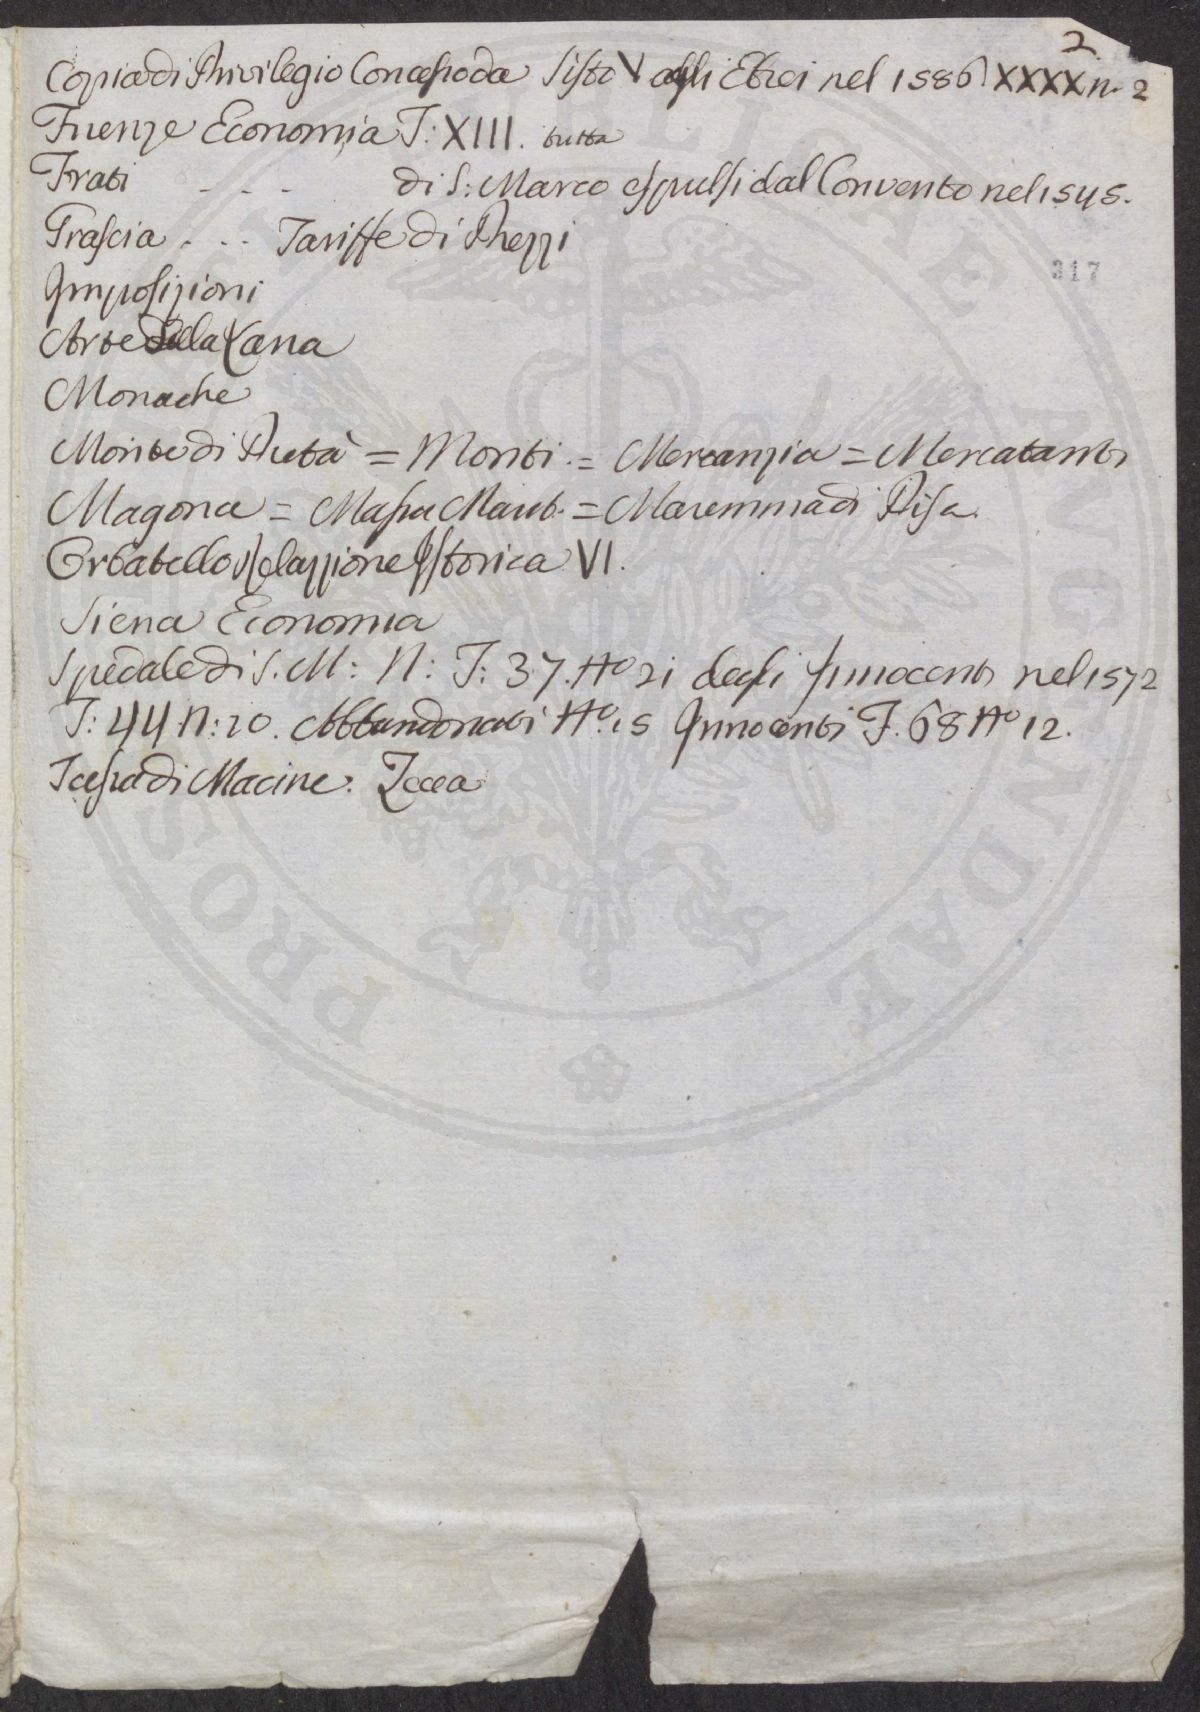 2
Copia di Privilegio Concesso da Sisto V agli Ebrei nel 1586 XXXX n. 2
Firenze Economia T: XIII. tutta
Frati - - - di S: Marco espulsi dal Convento nel 1545.
Grascia - - - Tariffe di Prezzi
317
Imposizioni
Arte della Lana
Monache
Monte di Pietà = Monti = Mercanzia = Mercatanti
Magona = Massa Maritt. = Maremma di Pisa
Orbatello Relazzione Istorica VI.
Siena Economia
Spedale di S. M: N: T: 37. No 21 degli Innocenti nel 1572
T: 44 N: 20. Abbandonati No: 15 Innocenti F. 68 No 12.
Tassa di Macine. Zecca